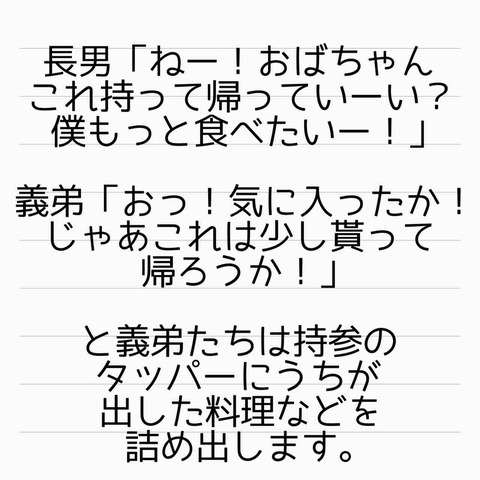 長男「ねー！おばちゃん
これ持って帰っていーい？
僕もっと食べたいー！」
義弟「おっ！気に入ったか！
じゃあこれは少し貰って
帰ろうか！」
と義弟たちは持参の
タッパーにうちが
出した料理などを
詰め出します。